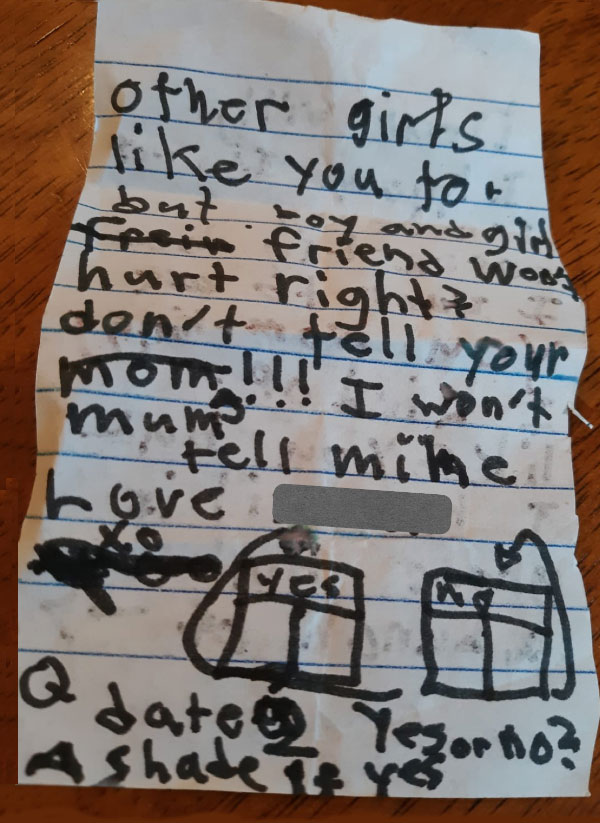 other girls
like you to.
but boy and girl
friend won't
hurt right?
don't tell your
mom!!!
mums. I won't
tell mine
Love
xo
yes no
Q date Yes or no?
A shade if yes